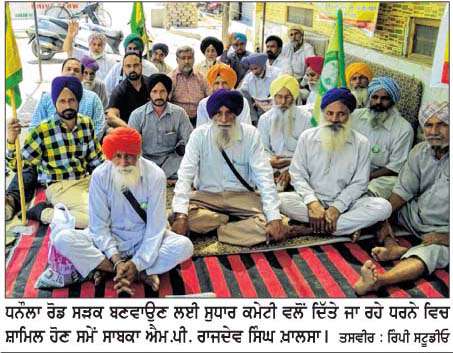 ਧਨੌਲਾ ਰੋਡ ਸੜਕ ਬਣਵਾਉਣ ਲਈ ਸੁਧਾਰ ਕਮੇਟੀ ਵਲੋਂ ਦਿੱਤੇ ਜਾ ਰਹੇ ਧਰਨੇ ਵਿਚ
ਸ਼ਾਮਿਲ ਹੋਣ ਸਮੇਂ ਸਾਬਕਾ ਐਮ.ਪੀ. ਰਾਜਦੇਵ ਸਿੰਘ ਖ਼ਾਲਸਾ। ਤਸਵੀਰ : ਰਿੰਪੀ ਸਟੂਡੀਓ